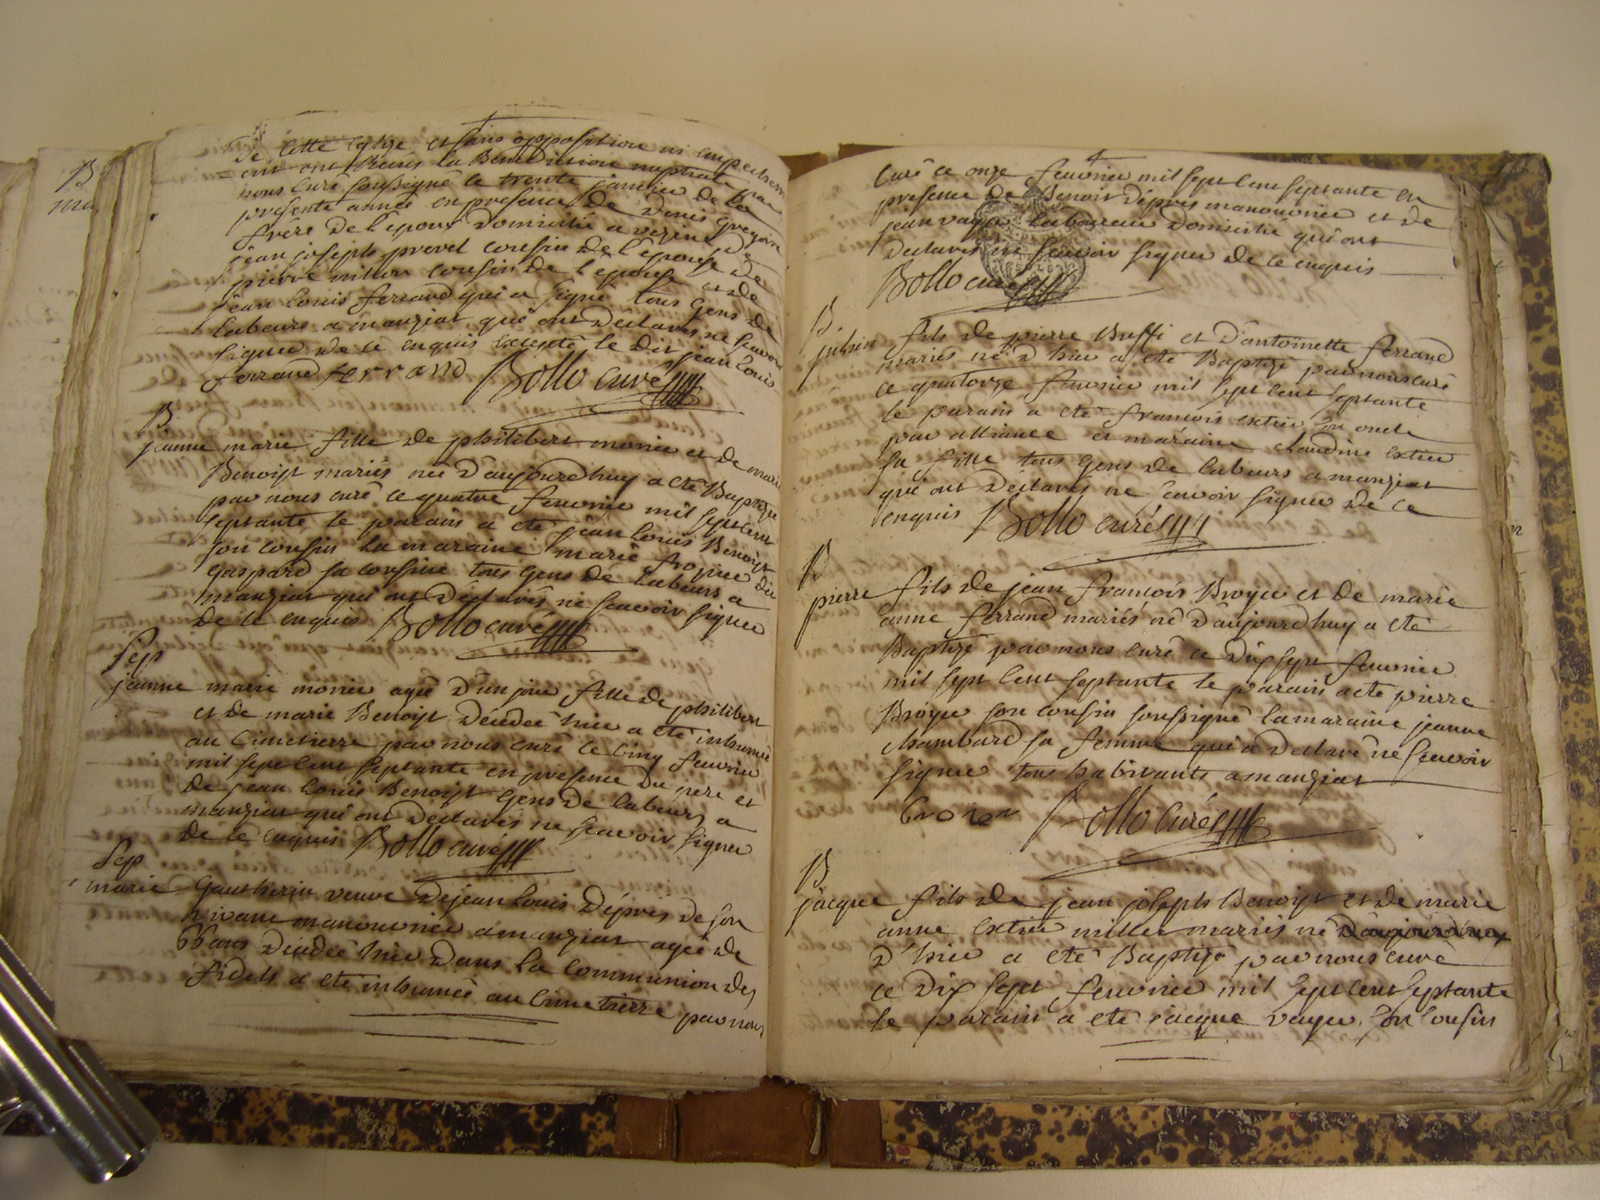 B
de cette eglise et sans opposition ni empechem
ent ont Recus la Benediction nuptiale par
nous curé soussigné le trente janvier de la
presente année en presence de Denis
frere de l'epoux Domicilié a
jean joseph prevel cousin de l'epouse de
pierre cousin de l'epouse et de
jean louis ferrand qui a signé tous gens de
labeurs a manziat qui ont declarés ne scavoir
signer de ce enquis excepté le dit jean louis
ferrand ferrand Bollo curé
B
jeanne marie fille de philibert monier et de marie
Benoist mariés née d'aujourdhuy a eté Baptizé
par nous curé ce quatre fevrier mil sept cent
septante le parain a eté jean louis Benoist
son cousin la maraine marie dit
gaspard sa cousine tous gens de labeurs a
manziat qui ont declarés ne scavoir signer
de ce enquis Bollo curé
Sep
jeanne marie monier agé d'un jour fille de philibert
et de marie Benoist décedeé hier a eté inhumeé
au cimetierre par nous curé ce cinq fevrier
mil sept cent septante en presence du pere et
de jean louis Benoist gens de labeurs a
manziat qui ont declarés ne scavoir signer
de ce enquis Bollo curé
Sep
marie Gautherin veuve de jean louis Dépris de son
vivant manouvrier a manziat ageé de
66 ans decedeé hier dans la communion des
fidels a eté inhumeé au cimetierre par nous
curé ce onze fevrier mil sept cent septante en
presence de Benoit Dépris manouvrier et de
jean vayer laboureur Domicilié qui ont
declarés ne scavoir signer de ce enquis
Bollo curé
B
fils de pierre Buffi et d'antoinette ferrand
mariés né d'hier a eté Baptizé par nous curé
ce quatorze fevrier mil sept cent septante
le parain a eté francois extier son oncle
par alliance et maraine claudine extier
sa fille tous gens de labeurs a manziat
qui ont declarés ne scavoir signer de ce
enquis Bollo curé
B
pierre fils de jean francois Broyer et de marie
anne ferrand mariés né d'aujourdhuy a eté
Baptizé par nous curé ce dix sept fevrier
mil sept cent septante le parain a eté pierre
Broyer son cousin soussigné la maraine jeanne
chambard sa femme qui a declaré ne scavoir
signer tous habitants a manziat
Broyer Bollo curé
B
jacque fils de jean joseph Benoist et de marie
anne extier mariés né
d'hier a eté Baptizé par nous curé
ce dix sept fevrier mil sept cent septante
le parain a eté jacque vayer son cousin